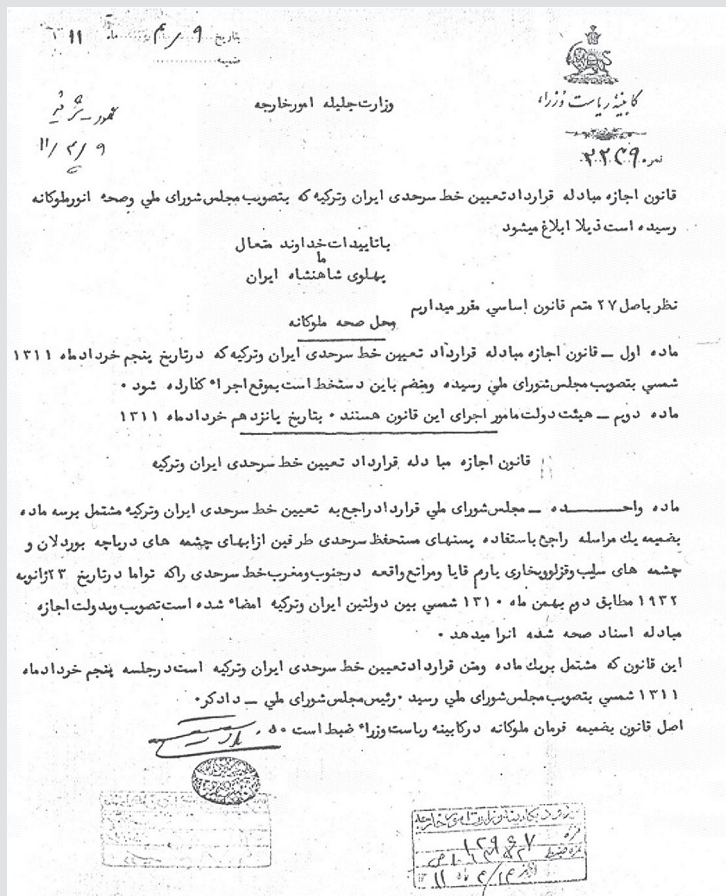 بتاریخ ۹ ماه ۱۱
ضمیمه
کابینهٔ ریاست وزراء
وزارت جلیله امورخارجه
۱۱/۳/۹
نمره ۲۲۴۹
قانون اجازه مبادله قرارداد تعیین خط سرحدی ایران وترکیه که بتصویب مجلس شورای ملي وصحه انور ملوکانه
رسیده است ذیلا ابلاغ میشود
باتاییدات خداوند متعال
ما
پهلوی شاهنشاه ایران
نظر باصل ۲۷ متمم قانون اساسي مقرر میداریم
محل صحه ملوکانه
ماده اول ــ قانون اجازه مبادله قرارداد تعیین خط سرحدی ایران وترکیه که درتاریخ پنجم خرداد ماه ۱۳۱۱
شمسي بتصویب مجلس شورای ملي رسیده ومنضم باین دستخط است بموقع اجراء گذارده شود ۰
ماده دویم ــ هیئت دولت مامور اجرای این قانون هستند ۰ بتاریخ پانزدهم خرداد ماه ۱۳۱۱
قانون اجازه مبا دله قرارداد تعیین خط سرحدی ایران وترکیه
ماده واحـــــــده ــ مجلس شورای ملي قرارداد راجع به تعیین خط سرحدی ایران وترکیه مشتمل برسه ماده
بضمیمه یك مراسله راجع باستفاده پستهای مستحفظ سرحدی طرفین ازابهای چشمه های دریاچه بوردلان و
چشمه های سلیب وقزلووبخاری یارم قایا ومراتع واقعه درجنوب ومغرب خط سرحدی راکه تواما درتاریخ ۲۳ژانویه
۱۹۳۲ مطابق دوم بهمن ماه ۱۳۱۰ شمسي بین دولتین ایران وترکیه امضاء شده است تصویب وبدولت اجازه
مبادله اسناد صحه شده انرا میدهد ۰
این قانون که مشتمل بریك ماده ومتن قرارداد تعیین خط سرحدی ایران وترکیه است درجلسه پنجم خرداد ماه
۱۳۱۱ شمسي بتصویب مجلس شورای ملي رسید ۰ رئیس مجلس شورای ملي ــ دادکر ۰
اصل قانون بضمیمه فرمان ملوکانه درکابینه ریاست وزراء ضبط است ۰
نمره ۱۲۹۶۷